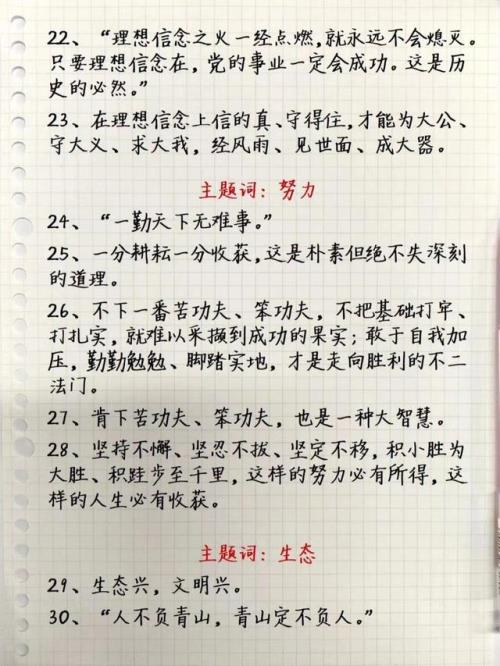 22、“理想信念之火一经点燃，就永远不会熄灭。
只要理想信念在，党的事业一定会成功。这是历
史的必然。”
23、在理想信念上信的真、守得住，才能为大公、
守大义、求大我，经风雨、见世面、成大器。
主题词：努力
24、“一勤天下无难事。”
25、一分耕耘一分收获，这是朴素但绝不失深刻
的道理。
26、不下一番苦功夫、笨功夫，不把基础打牢、
打扎实，就难以采撷到成功的果实；敢于自我加
压，勤勤勉勉、脚踏实地，才是走向胜利的不二
法门。
27、肯下苦功夫、笨功夫，也是一种大智慧。
28、坚持不懈、坚忍不拔、坚定不移，积小胜为
大胜、积跬步至千里，这样的努力必有所得，这
样的人生必有收获。
主题词：生态
29、生态兴，文明兴。
30、“人不负青山，青山定不负人。”